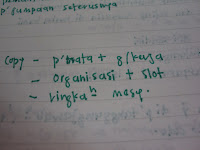 p'jumpaan seterusnya
Copy - p'mata + g/kerja
- Organisasi + slot
- ringkah masy.